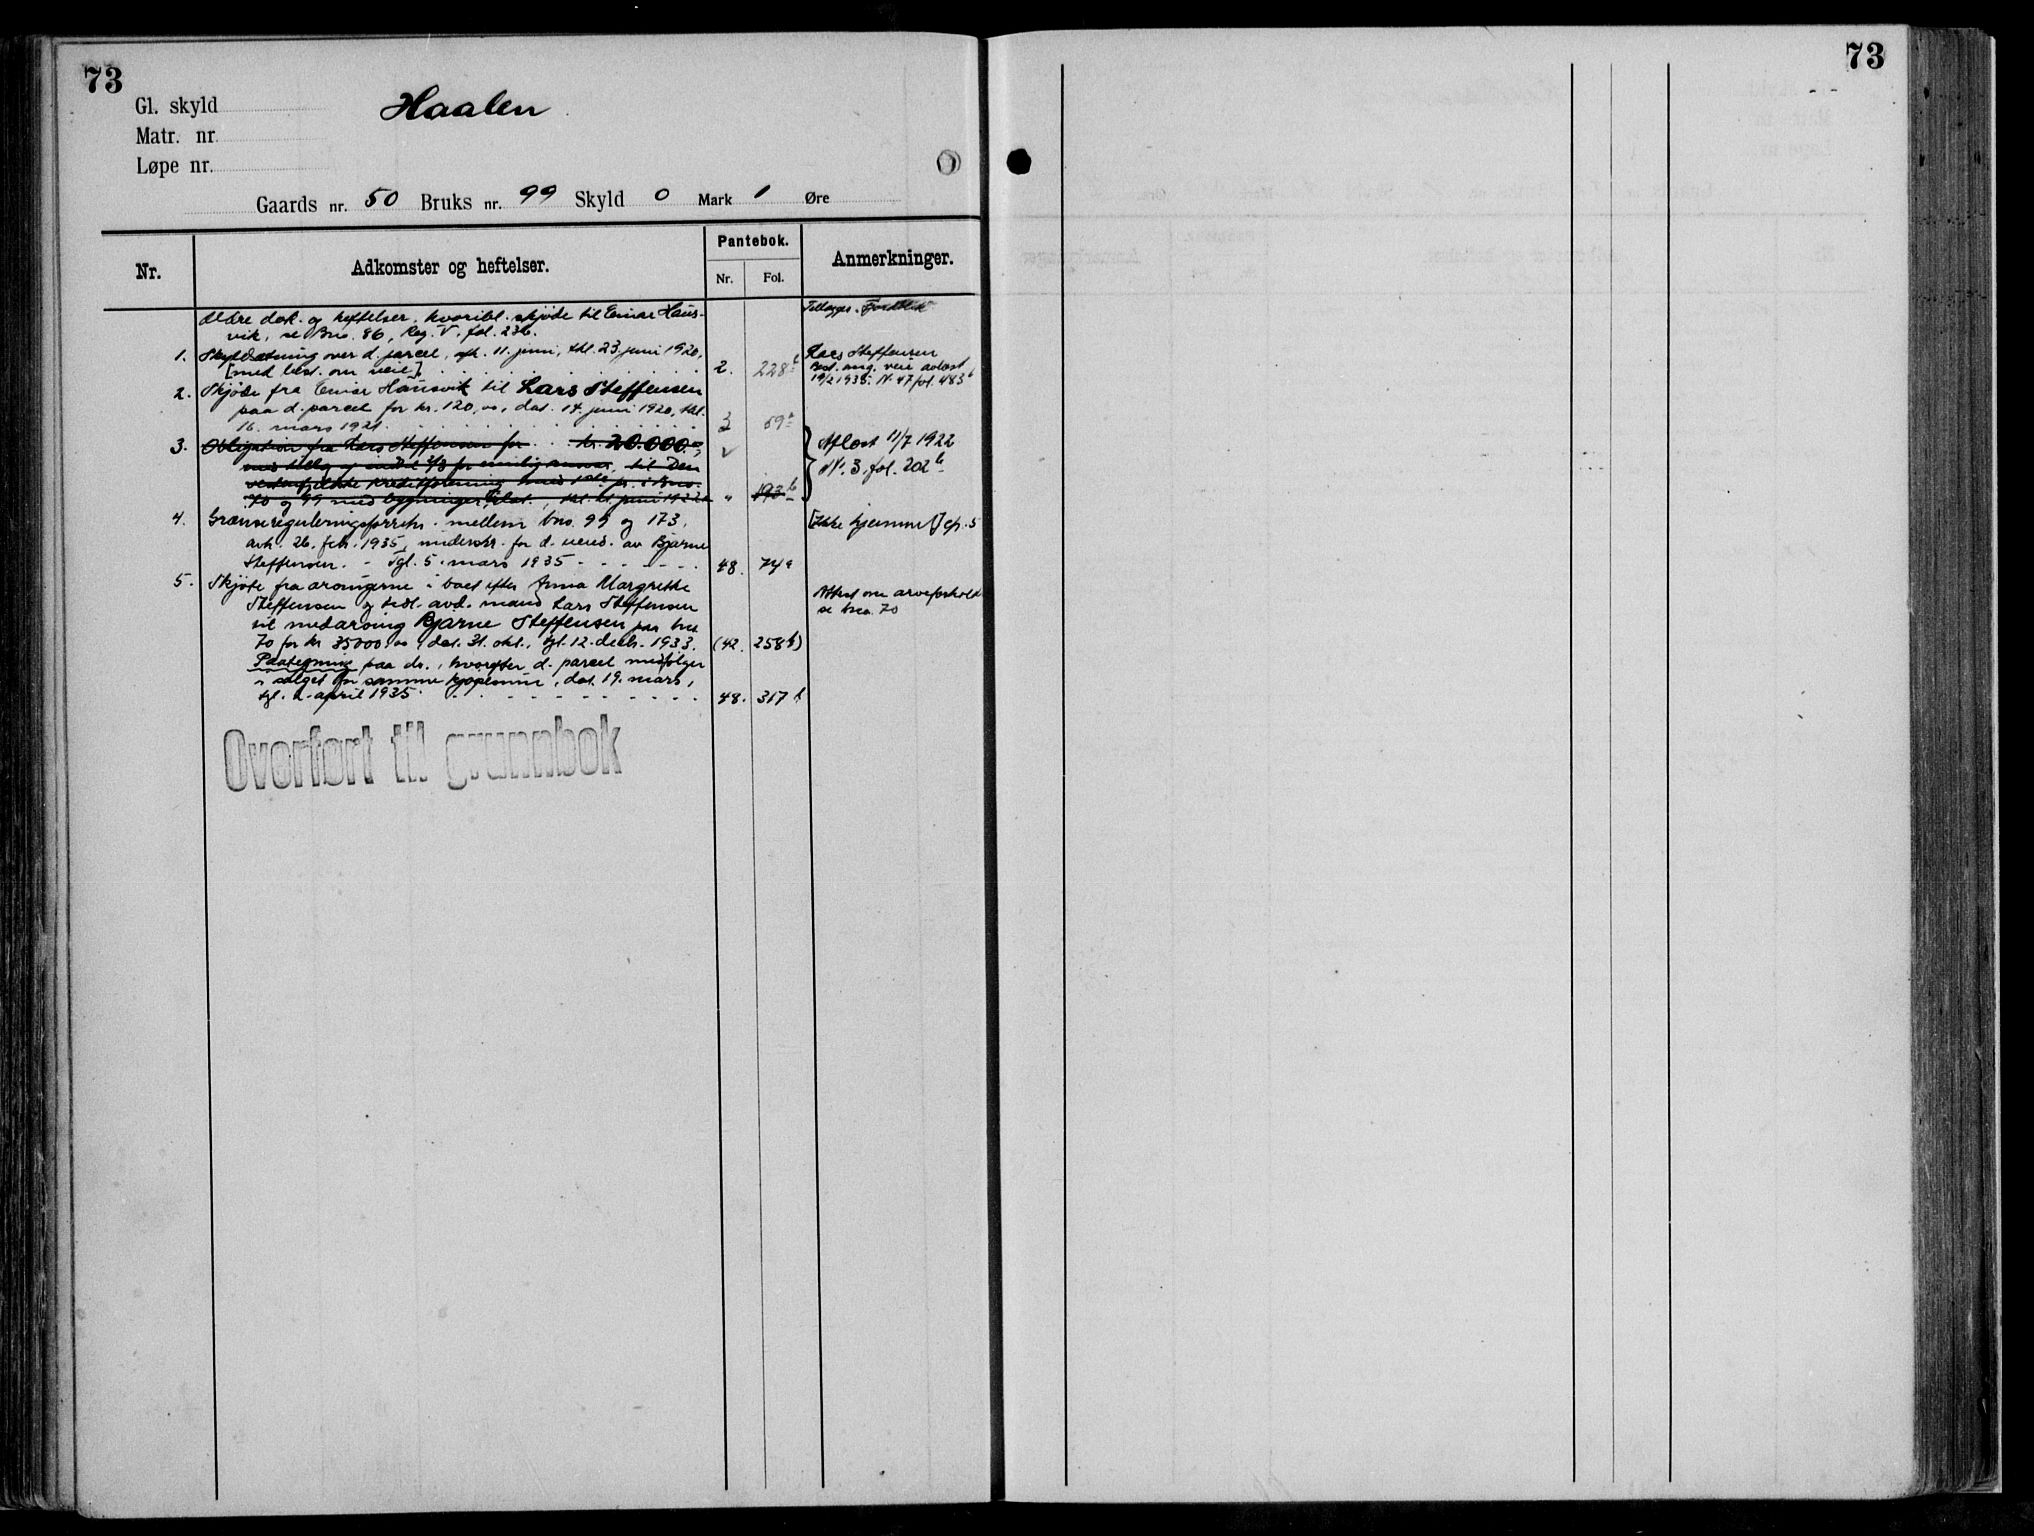 73
73
Gl. skyld
Haalen
Matr. nr.
Løpe nr.
Gaards nr. 50 Bruks nr. 99 Skyld 0 Mark 1 Øre
Nr.
Adkomster og heftelser.
Pantebok.
Nr. Fol.
Anmerkninger.
Ældre dok. og heftelser, hvoribl. skjøde til Einar Haus-
vik, se Bno. 86, Reg. V. fol. 236.
Tillægges
1. Skyldsætning over d. parcel, afh. 11. juni, thl. 23. juni 1920,
[med best. om veie] 2. 228b
Lars Steffensen
Best. ang. veie avløst
19/2 1935. N. 47 fol. 483b
2. Skjøde fra Einar Hausvik til Lars Steffensen
paa d. parcel for kr. 120,00, dat. 14. juni 1920, thl.
16. mars 1921. 3 59a
3. Obligation fra Lars Steffensen for kr. 20.000.-,
med tillæg af indtil 2/3 for ansvar, til Den
vestenfjeldske kreditforening med 1ste pr. i Bno.
70 og 99 med bygninger, dat. , thl. juni 1922 " 193b
Aflæst 11/7 1922
N. 3, fol. 202b
4. Grænsereguleringsforretn. mellem bno. 99 og 173,
avh. 26. febr. 1935, underskr. for d. vedk. av Bjarne
Steffensen. - Tgl. 5. mars 1935 48. 74a
[Ikke hjemmel] cfr. 5
5. Skjøte fra arvingerne i boet efter Anna Margrethe
Steffensen og tidl. avd. mand Lars Steffensen
til medarving Bjarne Steffensen paa bno
70 for kr 35000.00, dat. 31. okt., tgl. 12. decbr. 1933. (42. 258b)
Attest om arveforhold
se bno. 70
Paategning paa do., hvorefter d. parcel medfølger
i salget for samme kjøpesum, dat. 19. mars,
tgl. 2. april 1935. 48. 317b
Overført til grunnbok